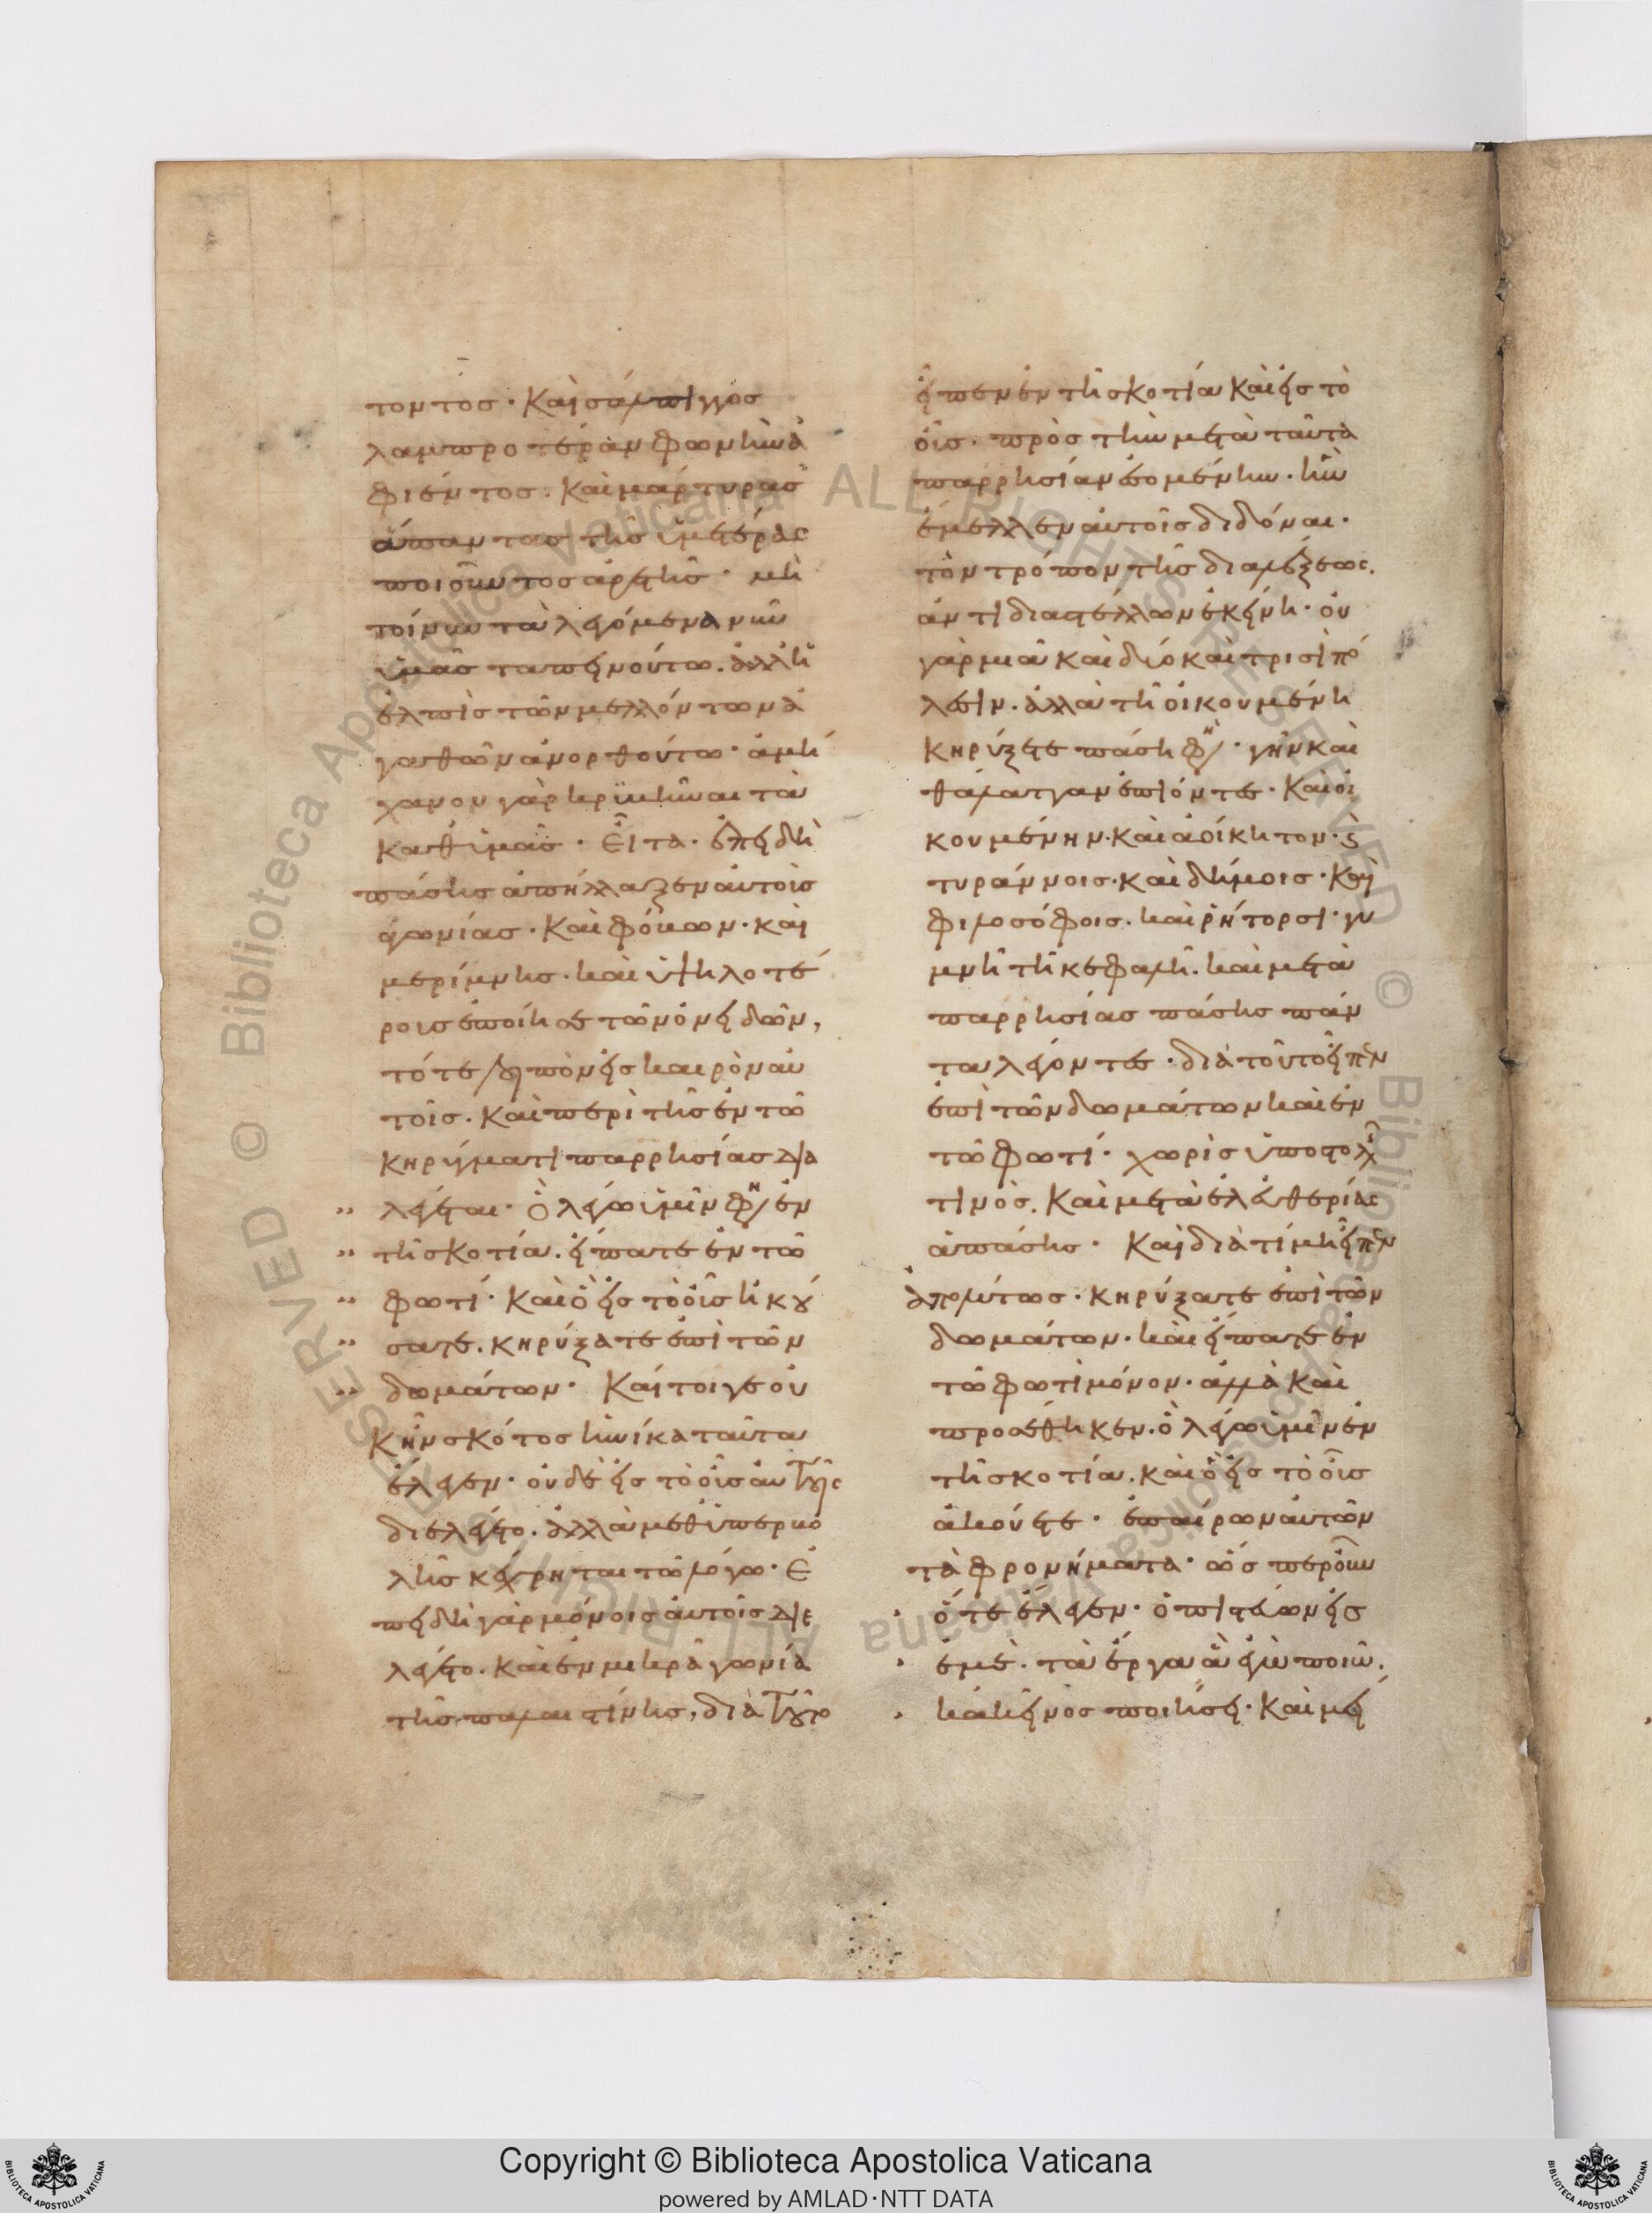 τοντος· καὶ σάλπιγγος
λαμπροτέραν φωνὴν ἀ
φιέντος. καὶ μάρτυρας
ἅπαντας τῆς ὑμετέρας
ποιοῦντος ἀρετῆς· μὴ
τοίνυν τὰ λεγόμενα νῦν
ὑμᾶς ταπεινούτω. ἀλλ' ἡ
ἐλπὶς τῶν μελλόντων ἀ
γαθῶν ἀνορθούτω· ἀμή
χανον γὰρ κρυβῆναι τὰ
καθ' ὑμᾶς· Εἶτα· ἐπειδὴ
πάσης ἀπήλλαξεν αὐτοὺς
ἀγωνίας· καὶ φόβων· καὶ
μερίμνης. καὶ ὑψηλοτέ
ρους ἐποίησε τῶν ὀνειδῶν,
τότε λοιπὸν εἰς καιρὸν αὐ
τοῖς. καὶ περὶ τῆς ἐν τῶ
κηρύγματι παρρησίας δια
λέγεται· ὃ λέγω ὑμῖν φη ἐν
τῆ σκοτία. εἴπατε ἐν τῶ
φωτί· καὶ ὃ εἰς τὸ οὖς ἠκού
σατε. κηρύξατε ἐπὶ τῶν
δωμάτων· Καίτοιγε οὐ
κ ἦν σκότος ἡνίκα ταῦτα
ἔλεγεν· οὐδὲ εἰς τὸ οὖς αὐτοῖς
διελέγετο. ἀλλὰ μεθ' ὑπερβο
λῆς κέχρηται τῶ λόγω· Ἐ
πειδὴ γὰρ μόνοις αὐτοῖς διε
λέγετο. καὶ ἐν μικρᾶ γωνία
τῆς παλαιστίνης, διὰ τοῦτο
εἶπεν ἐν τῆ σκοτία καὶ εἰς τὸ
οὖς. πρὸς τὴν μετὰ ταῦτα
παρρησίαν ἐσομένην. ἣν
ἔμελλεν αὐτοῖς διδόναι.
τὸν τρόπον τῆς διαλέξεως.
ἀντιδιαστέλλων ἐκείνη· οὐ
γὰρ μιᾶ καὶ δύο καὶ τρισὶ πό
λεσιν. ἀλλὰ τῆ οἰκουμένη
κηρύξετε πάση φη· γῆν καὶ
θάλατταν ἐπιόντες. καὶ οἰ
κουμένην. καὶ ἀοίκητον. καὶ
τυράννοις. καὶ δήμοις. καὶ
φιλοσόφοις. καὶ ῥήτορσι· γυ
μνῆ τῆ κεφαλῆ. καὶ μετὰ
παρρησίας πάσης πάν
τα λέγοντες· διὰ τοῦτο εἶπεν
ἐπὶ τῶν δωμάτων καὶ ἐν
τῶ φωτί· χωρὶς ὑποστολῆς
τινός. καὶ μετὰ ἐλευθερίας
ἁπάσης· Καὶ διὰ τί μὴ εἶπεν
ἀπολύτως· κηρύξατε ἐπὶ τῶν
δωμάτων. καὶ εἴπατε ἐν
τῶ φωτὶ μόνον. ἀλλὰ καὶ
προσέθηκεν. ὃ λέγω ὑμῖν ἐν
τῆ σκοτία. καὶ ὃ εἰς τὸ οὖς
ἀκούετε· ἐπαίρων αὐτῶν
τὰ φρονήματα· ὥσπερ οὖν
ὅτε ἔλεγεν· ὁ πιστεύων εἰς
ἐμέ. τὰ ἔργα ἃ ἐγὼ ποιῶ.
κἀκεῖνος ποιήσει. καὶ μεί